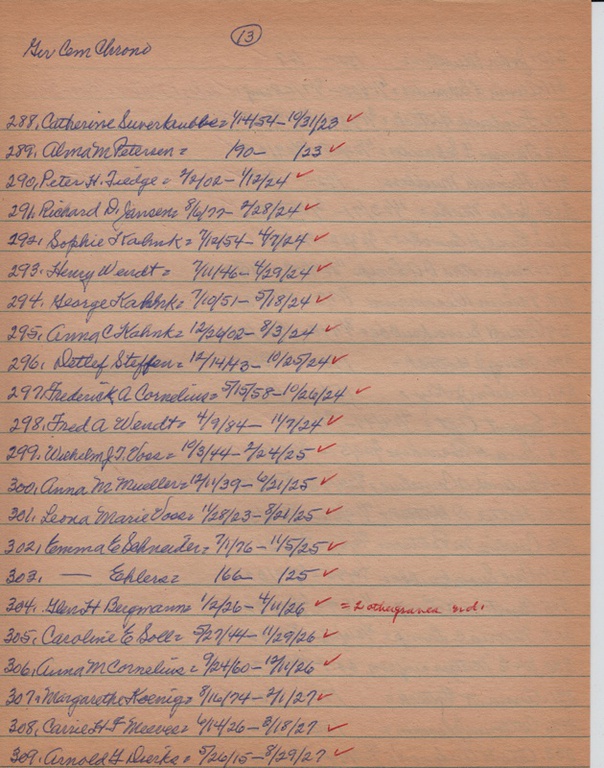 13
Ger Cem Chrono
288. Catherine Suverkrubbe = 1/14/54 - 10/31/23 ✓
289. Alma M Petersen = /90 - /23 ✓
290. Peter H. Tiedge = 2/2/02 - 1/12/24 ✓
291. Richard D. Jansen = 8/6/77 - 2/28/24 ✓
292. Sophie Kahnk = 7/12/54 - 4/7/24 ✓
293. Henry Wendt = 7/11/46 - 4/29/24 ✓
294. George Kahnk = 7/10/51 - 5/18/24 ✓
295. Anna C Kahnk = 12/26/02 - 8/3/24 ✓
296. Detlef Steffen = 12/14/43 - 10/25/24 ✓
297. Frederick A Cornelius = 5/15/58 - 10/26/24 ✓
298. Fred A Wendt = 4/9/84 - 11/7/24 ✓
299. Wilhelm J. T. Voss = 10/3/44 - 2/24/25 ✓
300. Anna M Mueller = 12/11/39 - 6/21/25 ✓
301. Leona Marie Voss = 11/28/23 - 8/21/25 ✓
302. Emma E Schneider = 7/1/76 - 11/5/25 ✓
303. — Ehlers = /66 - /25 ✓
304. Glen H Bergmann = 1/2/26 - 4/11/26 ✓ = 2 other
305. Caroline E Soll = 5/27/44 - 11/29/26 ✓
306. Anna M Cornelius = 9/24/60 - 12/11/26 ✓
307. Margarethe Koenig = 8/16/74 - 2/1/27 ✓
308. Carrie H F = 6/14/26 - 3/18/27 ✓
309. Arnold G Dierks = 5/26/15 - 8/29/27 ✓